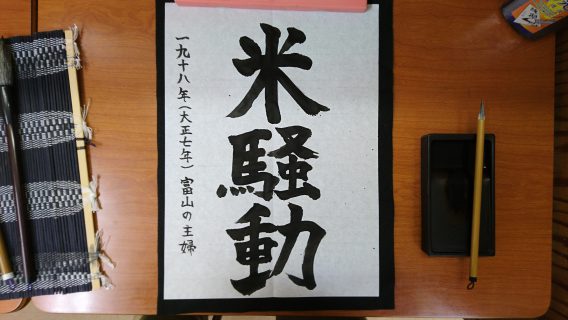 米騒動
一九十八年(大正七年)富山の主婦